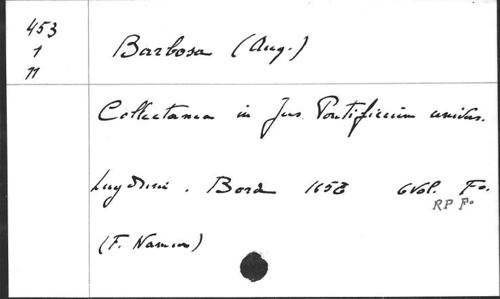 453
1
11
Barbosa (Aug.)
Collectanea in Jus. Pontificium univers.
Lugduni. Bord 1658 6 Vol. Fo.
RP Fo
(F. Namur)